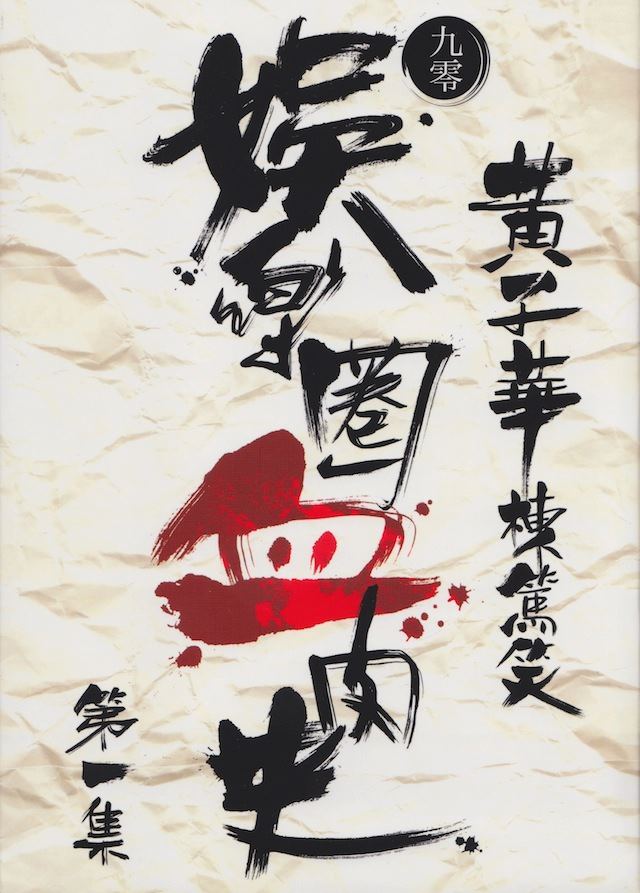 九零
黃子華
棟篤笑
娛樂圈血肉史
第一集